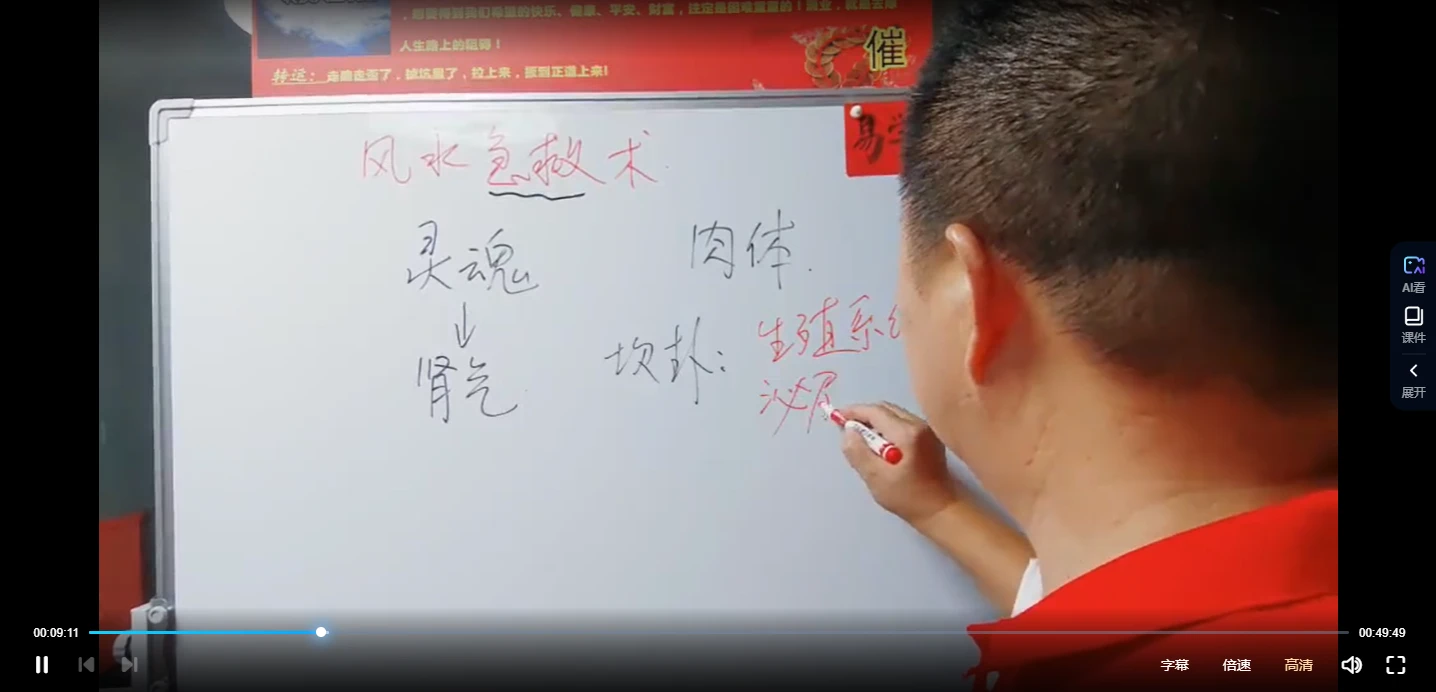 ，即要得到我们希望的快乐、健康、平安、财富，注定是困难重重的！
人生路上的阻碍！
催
转运：走路走歪了，掉坑里了，拉上来，振到正道上来！
易学
风水急救术
灵魂 肉体
↓
肾气 坎卦：生殖系
泌尿
AI看
课件
展开
00:09:11 00:49:49
字幕 倍速 高清